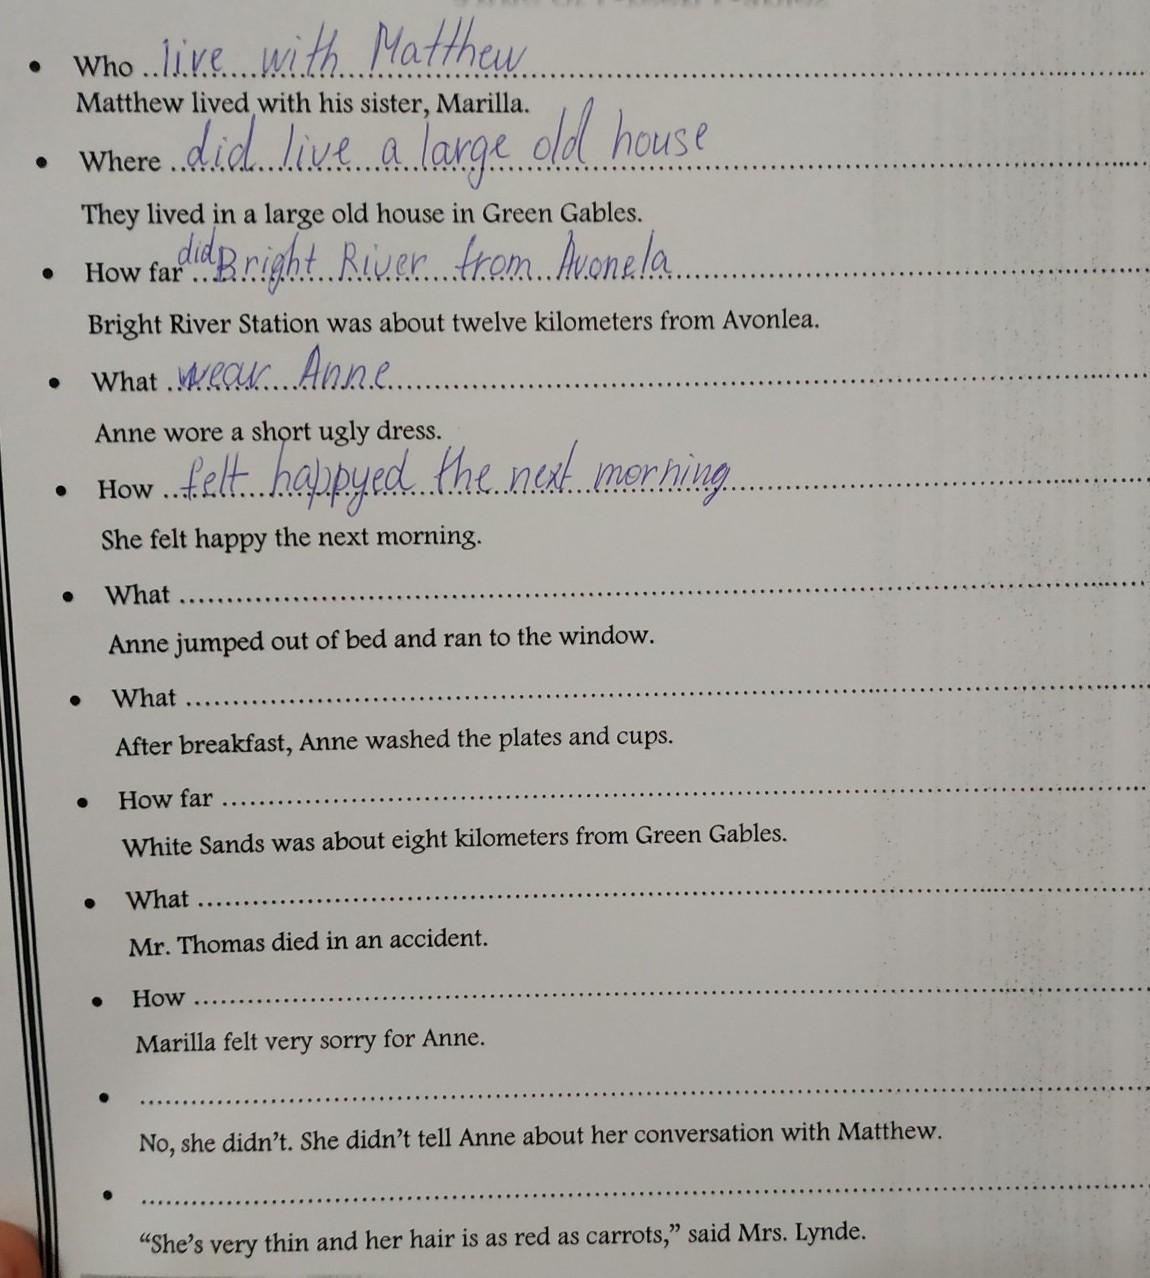 • Who ..live with Matthew
Matthew lived with his sister, Marilla.
• Where ..did live a large old house
They lived in a large old house in Green Gables.
• How far did Bright River from Avonela
Bright River Station was about twelve kilometers from Avonlea.
• What ..wear Anne
Anne wore a short ugly dress.
• How ..felt happyed the next morning
She felt happy the next morning.
• What ..........
Anne jumped out of bed and ran to the window.
• What ..........
After breakfast, Anne washed the plates and cups.
• How far ..........
White Sands was about eight kilometers from Green Gables.
• What ..........
Mr. Thomas died in an accident.
• How ..........
Marilla felt very sorry for Anne.
• ..........
No, she didn't. She didn't tell Anne about her conversation with Matthew.
• ..........
“She's very thin and her hair is as red as carrots,” said Mrs. Lynde.